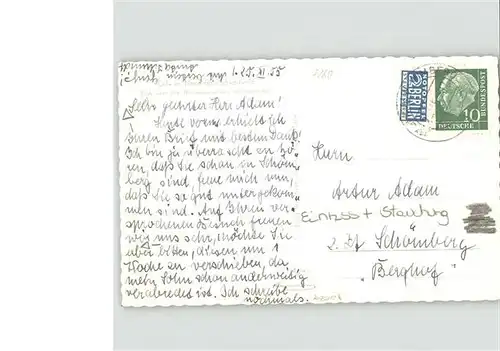 1. 25. VI. 55
Sehr geehrter Herr Adam!
Heute vorm. erhielt ich
Ihren Brief mit bestem Dank!
Ich bin zu überrascht zu hö-
ren, daß Sie schon in Schöm-
berg sind, freue mich nun,
daß Sie so gut untergekom-
men sind. Auf Ihren ver-
sprochenen Besuch freuen
wir uns sehr, möchte Sie
aber bitten, diesen um 1
Woche zu verschieben, da
mein Sohn schon anderweitig
verabredet ist. Ich schreibe
nochmals.
NOTOPFER
2 BERLIN
STEUERMARKE
DEUTSCHE
BUNDESPOST
10
Herrn
Artur Adam
Schömberg
"Berghof"